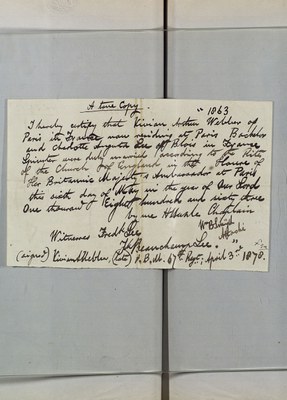 A true Copy. " 1863
I hereby certify that Vivian Arthur Webber of
Paris in France now residing at Paris Bachelor
and Charlotte Augusta Lee of Blois in France
Spinster were duly married according to the Rites
of the Church of England in the House of
Her Britannic Majesty's Ambassador at Paris
this sixth day of May in the year of our Lord
One thousand Eight hundred and sixty three
by me Chaplain
Witnesses Fredk Lee
Beauchamp Lee. "
(signed) Vivian Webber, (late) 67th Regt, April 3rd 1878.